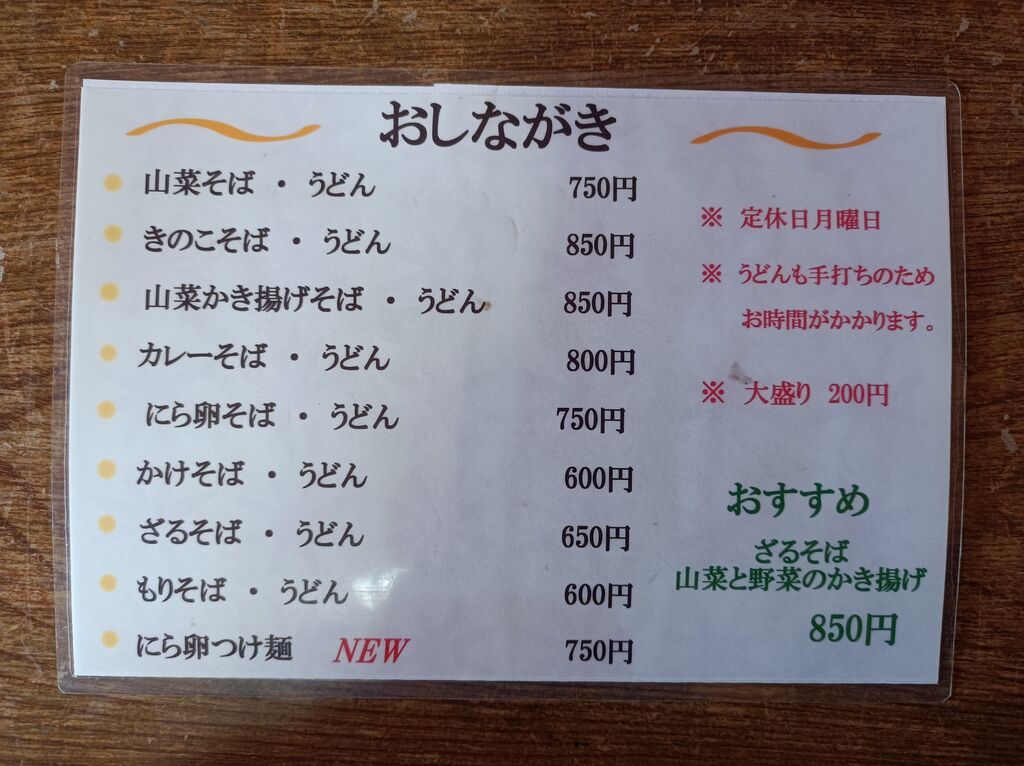 おしながき
山菜そば ・ うどん 750円
きのこそば ・ うどん 850円
山菜かき揚げそば ・ うどん 850円
カレーそば ・ うどん 800円
にら卵そば ・ うどん 750円
かけそば ・ うどん 600円
ざるそば ・ うどん 650円
もりそば ・ うどん 600円
にら卵つけ麺 NEW 750円
※ 定休日月曜日
※ うどんも手打ちのため
お時間がかかります。
※ 大盛り 200円
おすすめ
ざるそば
山菜と野菜のかき揚げ
850円